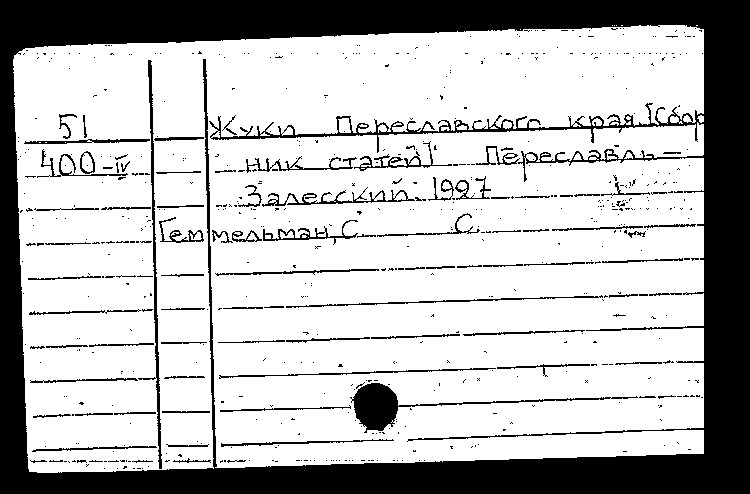 51 Жуки Переславского края. [Сбор
400-IV ник статей] Переславль-
Залесский. 1927
Геммельман, С. С.